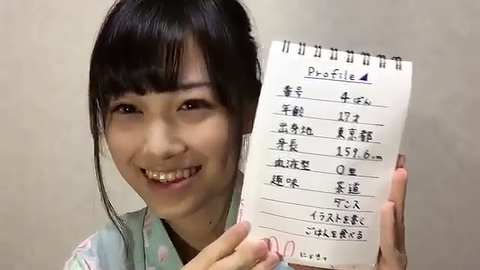 Profile
番号 4ばん
年齢 17才
出身地 東京都
身長 159.6cm
血液型 O型
趣味 茶道
ダンス
イラストを書く
ごはんを食べる